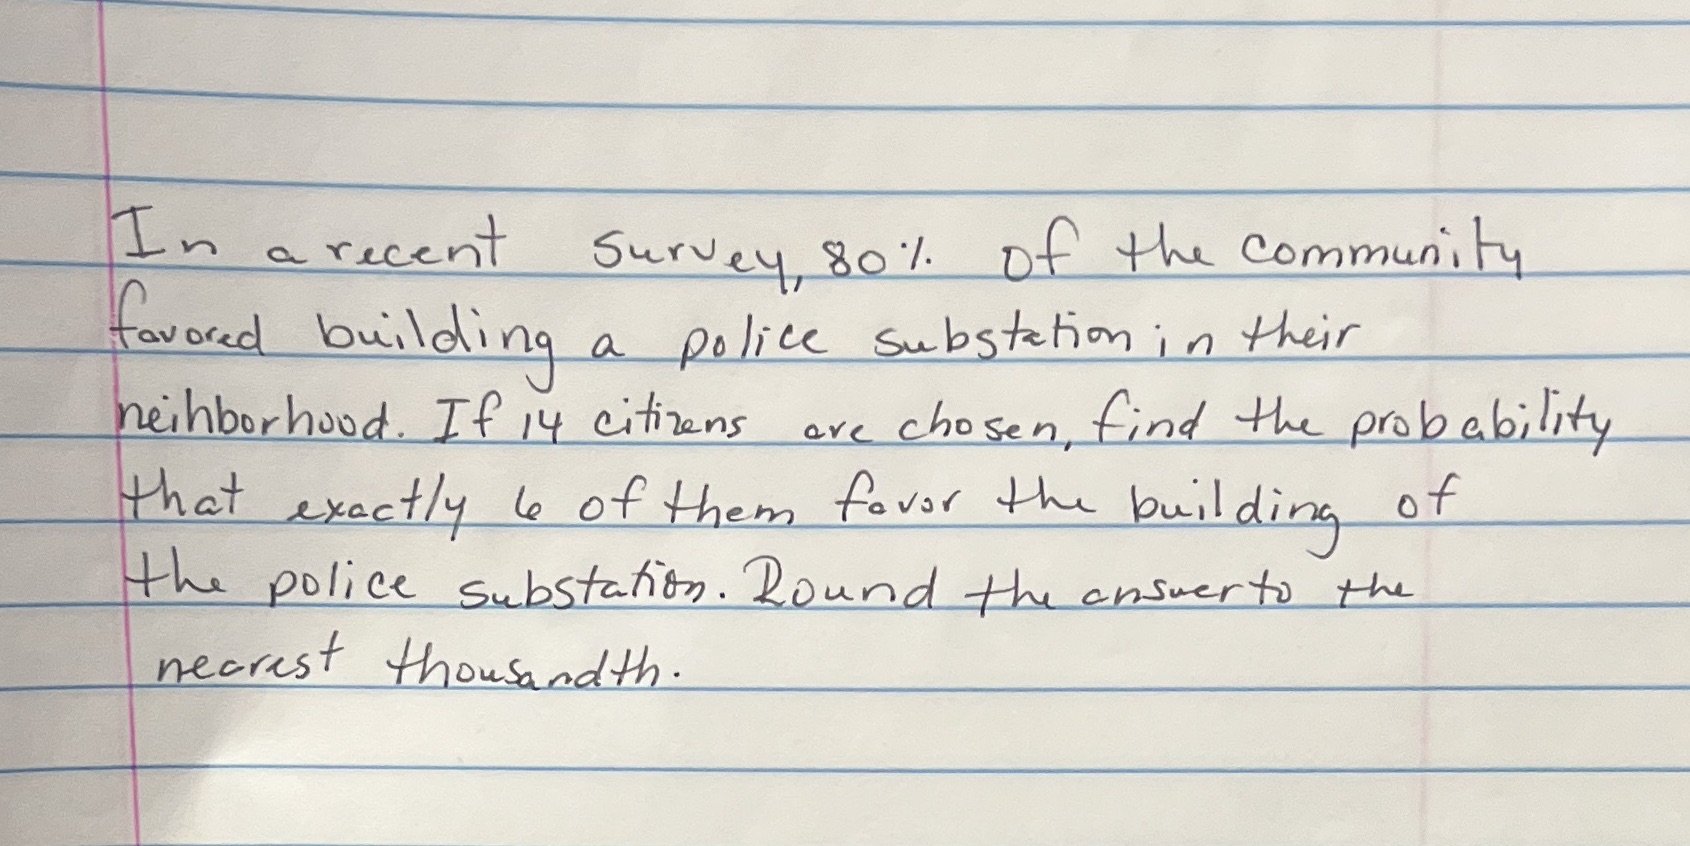 In a recent survey, 80% of the community
favored building a police substation in their
neihborhood. If 14 citizens are chosen, find the probability
that exactly 6 of them favor the building of
the police substation. Round the answer to the
nearest thousandth.